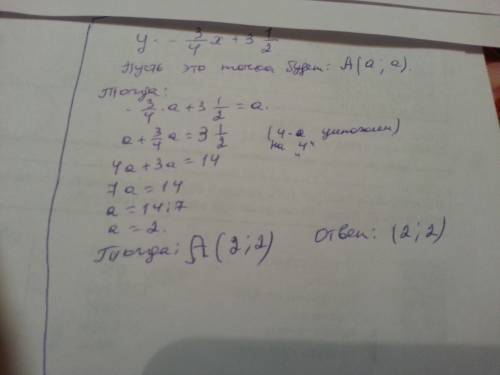 y = - 3/4 x + 3 1/2
Пусть это точка будет: A(a; a).
Тогда:
- 3/4 · a + 3 1/2 = a.
a + 3/4 a = 3 1/2 (4-а умножаем)
на "4"
4a + 3a = 14
7a = 14
a = 14 : 7
a = 2.
Тогда: A(2; 2) Ответ: (2; 2)